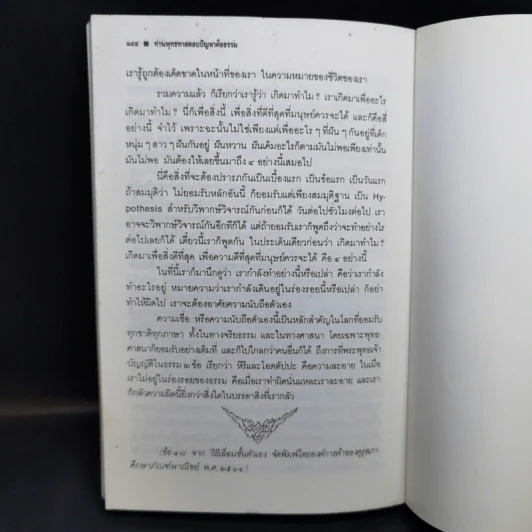 ๑๔๔ ■ ท่านพุทธทาสตอบปัญหาศีลธรรม
เรารู้ถูกต้องเด็ดขาดในหน้าที่ของเรา ในความหมายของชีวิตของเรา
รวมความแล้ว ก็เรียกว่าเรารู้ว่า เกิดมาทำไม? เราเกิดมาเพื่ออะไร
เกิดมาทำไม? นี่ก็เพื่อสิ่งนี้ เพื่อสิ่งที่ดีที่สุดที่มนุษย์ควรจะได้ และก็คือสี่
อย่างนี้ จำไว้ เพราะฉะนั้นไม่ใช่เพียงแต่เพื่ออะไร ๆ ที่ฝัน ๆ กันอยู่ที่เด็ก
หนุ่ม ๆ สาว ๆ ฝันกันอยู่ ฝันหวาน ฝันเค็มอะไรก็ตามมันไม่พอเพียงเท่านั้น
มันไม่พอ มันต้องให้เลยขึ้นมาถึง ๔ อย่างนี้เสมอไป
นี่คือสิ่งที่จะต้องปรารภกันเป็นเบื้องแรก เป็นข้อแรก เป็นวันแรก
ถ้าสมมุติว่า ไม่ยอมรับหลักอันนี้ ก็ยอมรับแต่เพียงสมมุติฐาน เป็น Hy-
pothesis สำหรับวิพากษ์วิจารณ์กันก่อนก็ได้ วันต่อไปชั่วโมงต่อไป เรา
อาจจะวิพากษ์วิจารณ์กันอีกทีก็ได้ แต่ถ้ายอมรับเราก็พูดถึงว่าจะทำอย่างไร
ต่อไปเลยก็ได้ เดี๋ยวนี้เราก็พูดกัน ในประเด็นเดียวก่อนว่า เกิดมาทำไม?
เกิดมาเพื่อสิ่งที่ดีที่สุด เพื่อความดีที่สุดที่มนุษย์ควรจะได้ คือ ๔ อย่างนี้
ในที่นี้เราก็มานึกดูว่า เรากำลังทำอย่างนี้หรือเปล่า คือว่าเรากำลัง
ทำอะไรอยู่ หมายความว่าเรากำลังเดินอยู่ในร่องรอยนี้หรือเปล่า ก็อย่า
ทำให้ผิดไป เราจะต้องอาศัยความนับถือตัวเอง
ความเชื่อ หรือความนับถือตัวเองนี้เป็นหลักสำคัญในโลกที่ยอมรับ
ทุกชาติทุกภาษา ทั้งในทางจริยธรรม และในทางศาสนา โดยเฉพาะพุทธ-
ศาสนาก็ยอมรับอย่างเต็มที่ และก็ไปไกลกว่าคนอื่นก็ได้ ถึงการที่พระพุทธเจ้า
บัญญัติในธรรม ๒ ข้อ เรียกว่า หิริและโอตตัปปะ คือความละอาย ในเมื่อ
เราไม่อยู่ในร่องรอยของธรรม คือเมื่อเราทำผิดนั่นแหละเราละอาย และเรา
ก็กลัวความผิดนี้ยิ่งกว่าสิ่งใดในบรรดาสิ่งที่เรากลัว
(ข้อ ๔.๘ จาก วิธีเลื่อนชั้นตัวเอง จัดพิมพ์โดยองค์การค้าของคุรุสภา
ศึกษาภัณฑ์พาณิชย์ พ.ศ.